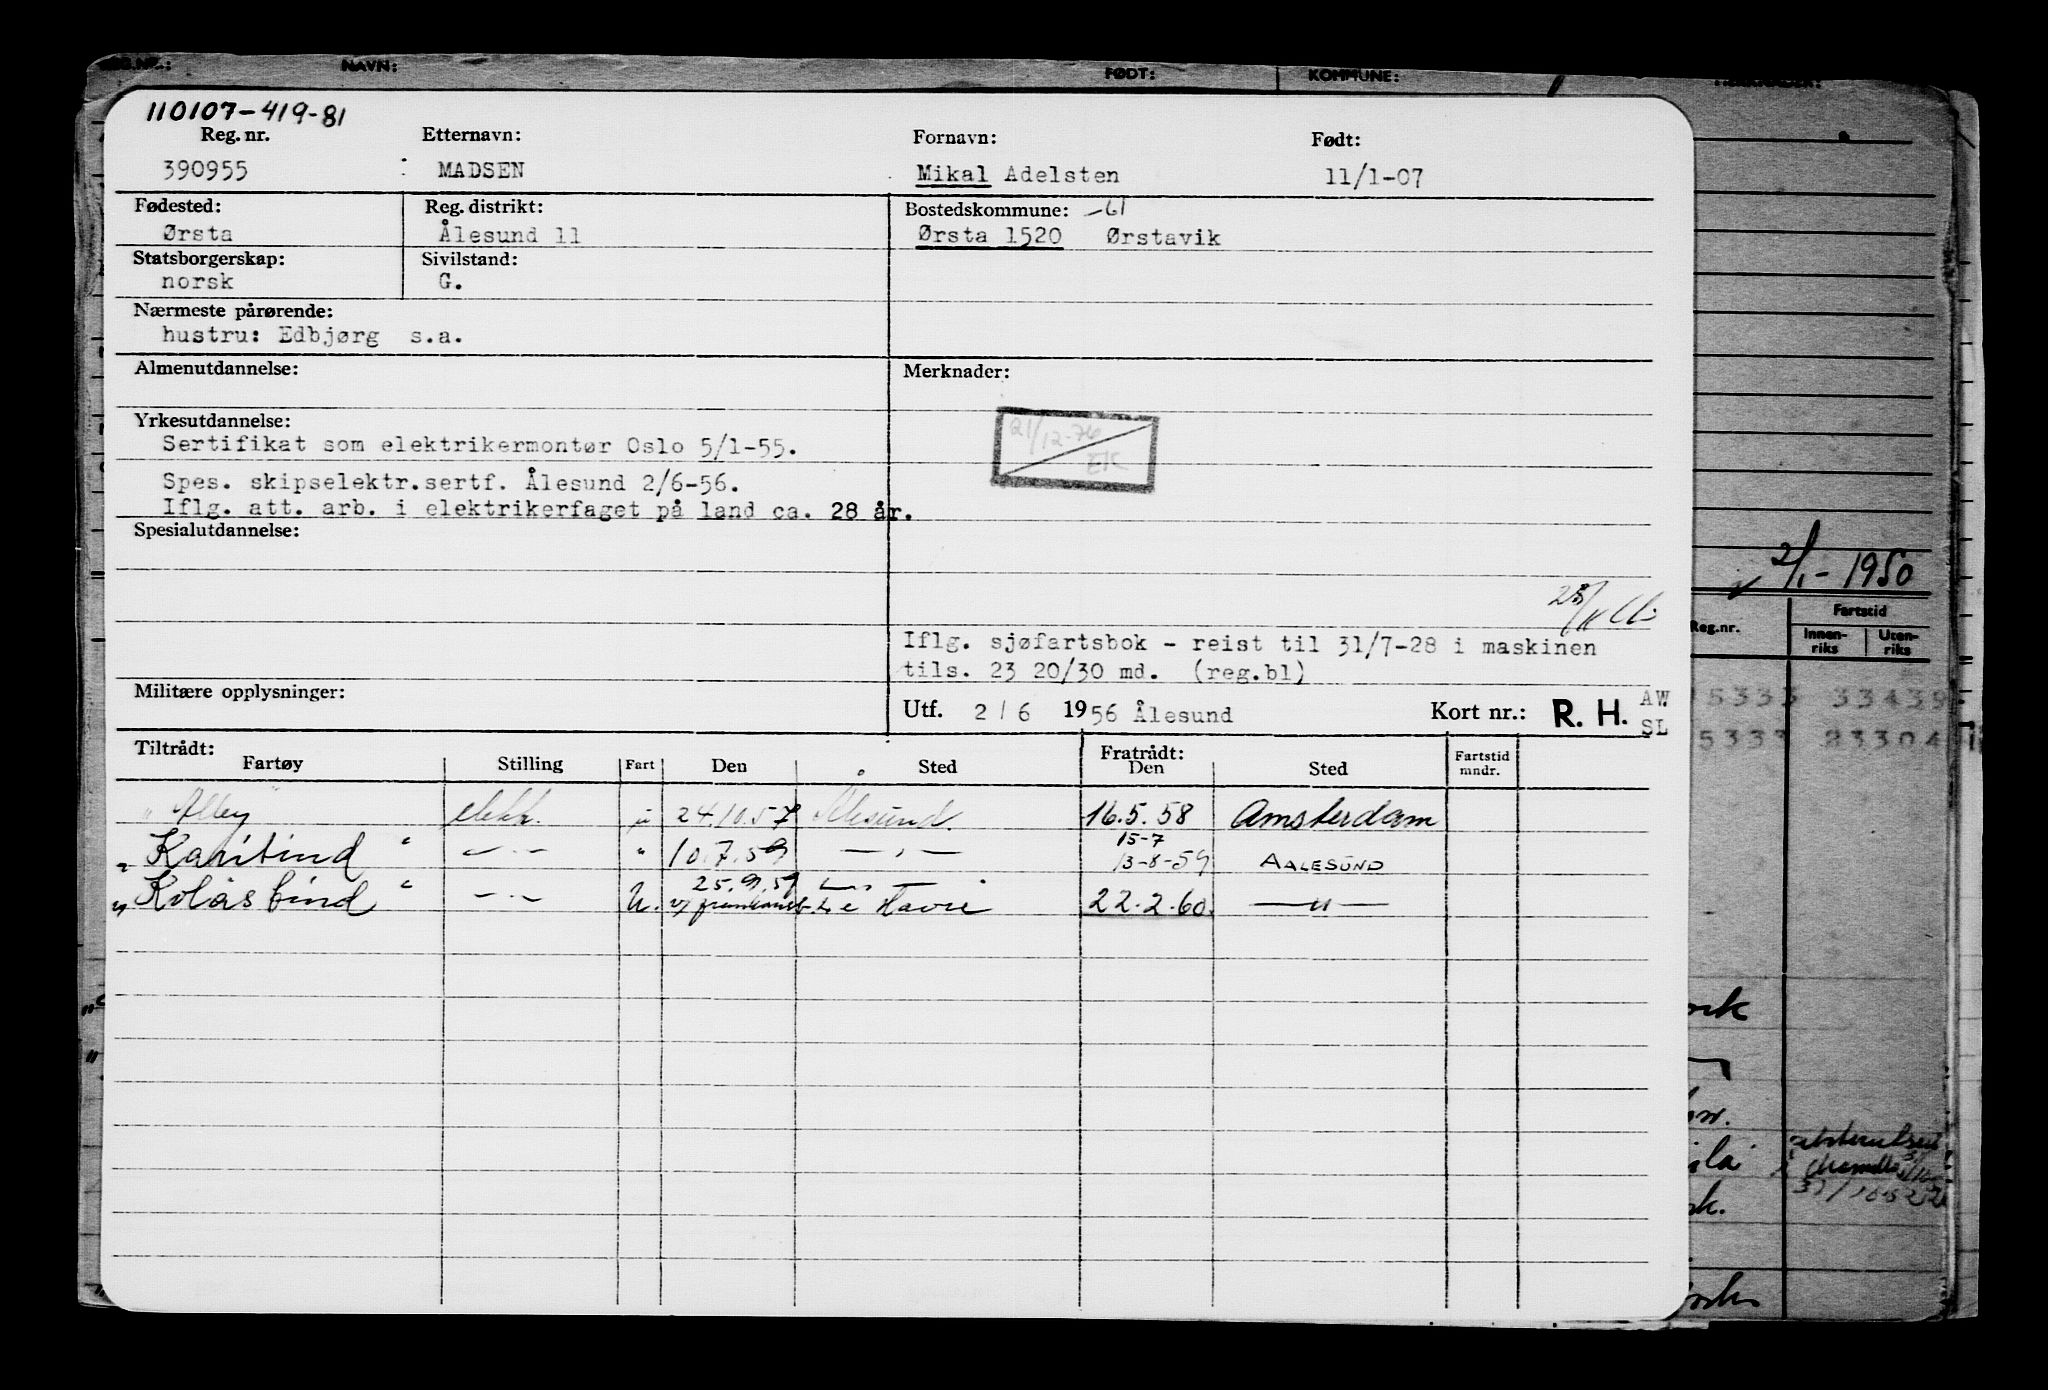 REG.NR.: NAVN: FØDT: KOMMUNE:
110107-419-81
Reg. nr. Etternavn: Fornavn: Født:
390955 MADSEN Mikal Adelsten 11/1-07
Fødested: Reg. distrikt: Bostedskommune: -61
Ørsta Ålesund 11 Ørsta 1520 Ørstavik
Statsborgerskap: Sivilstand:
norsk G.
Nærmeste pårørende:
hustru: Edbjørg s.a.
Almenutdannelse: Merknader:
Yrkesutdannelse:
21/12-76
Sertifikat som elektrikermontør Oslo 5/1-55.
EK
Spes. skipselektr.sertf. Ålesund 2/6-56.
Iflg. att. arb. i elektrikerfaget på land ca. 28 år.
Spesialutdannelse:
2/1-1950
Iflg. sjøfartsbok - reist til 31/7-28 i maskinen
tils. 23 20/30 md. (reg.bl)
Militære opplysninger:
Utf. 2/6 1956 Ålesund Kort nr.: R. H. AW
SL
Reg.nr. Fartstid
Innen-riks Uten-riks
5333 33439
5333 23304
Tiltrådt: Fratrådt:
Fartøy Stilling Fart Den Sted Den Sted Fartstid mndr.
"Alley" elektr. u 24.10.57 Ålesund. 16.5.58 Amsterdam
15-7
"Karitind" -"- " 10.7.59 -"- 13-8-59 AALESUND
25.9.59 -"-
"Kolåstind" -"- U. Le Havre 22.2.60. -"-